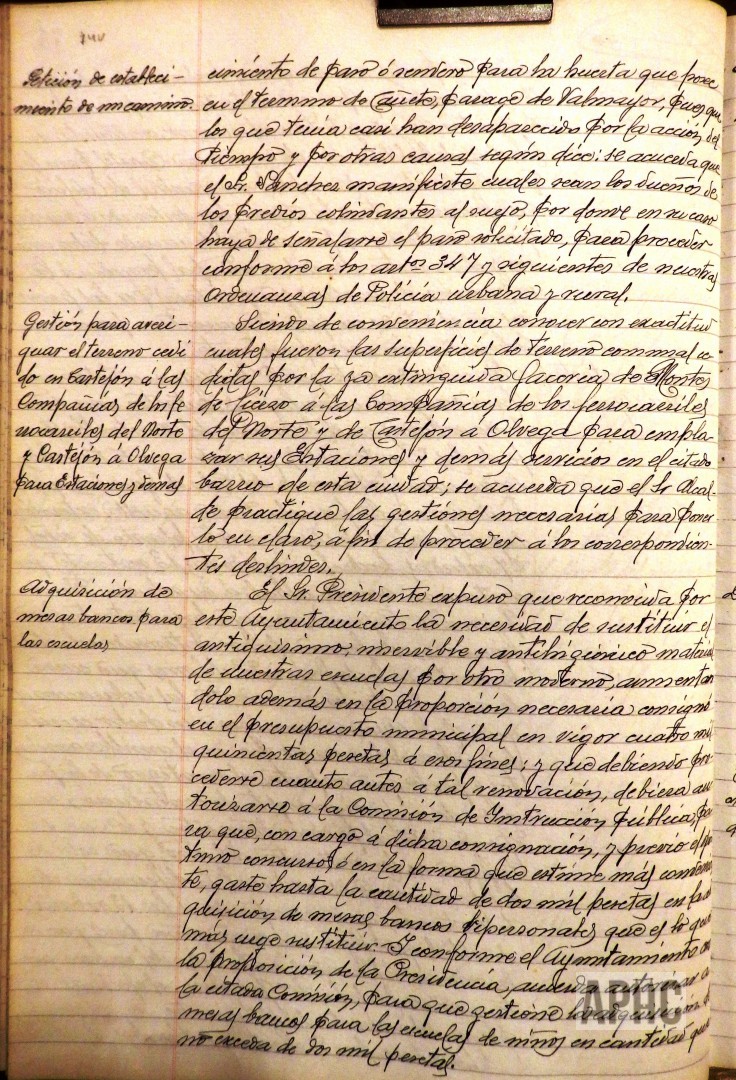 Petición de estableci-
miento de un camino.
cimiento de paso ó sendero para la huerta que posee
en el termino de Cañete, parage de Valmayor, pues que
los que tenia casi han desaparecido por la acción del
tiempo y por otras causas según dice: se acuerda que
el Sr. Sanchez manifieste cuales sean los dueños de
los predios colindantes al suyo, por donde en su caso
haya de señalarse el paso solicitado, para proceder
conforme á los artos 347 y siguientes de nuestras
Ordenanzas de Policía urbana y rural.
Gestión para averi-
guar el terreno cedi
do en Castejón á las
Compañias de los fe
rrocarriles del Norte
y Castejón á Olvega
para Estaciones y demas
Siendo de conveniencia conocer con exactitud
cuales fueron las superficies de terreno comunal ce
didas por la ya extinguida faceria de Montes
de Cierzo á las Compañias de los ferrocarriles
del Norte y de Castejón á Olvega para empla-
zar sus Estaciones y demás servicios en el citado
barrio de esta ciudad; se acuerda que el Sr Alcal-
de practique las gestiones necesarias para poner
lo en claro, á fin de proceder á los correspondien-
tes deslindes.
Adquisición de
mesas bancos para
las escuelas
El Sr. Presidente expuso que reconocida por
este Ayuntamiento la necesidad de sustituir el
antiquisimo, inservible y antihigiénico material
de nuestras escuelas por otro moderno, aumentan
dolo además en la proporción necesaria consignó
en el presupuesto municipal en vigor cuatro mil
quinientas pesetas á esos fines; y que debiendo pro
cederse cuanto antes á tal renovación, debiera au
torizarse á la Comisión de Instrucción pública, pa
ra que, con cargo á dicha consignación, y previo el opor
tuno concurso, ó en la forma que estime más convenien
te, gaste hasta la cantidad de dos mil pesetas en la ad
quisición de mesas bancos bipersonales que es lo que
más urge sustituir. Y conforme el Ayuntamiento con
la proposición de la Presidencia, acuerda autorizar á
la citada Comisión, para que gestione la adquisición de
mesas bancos para las escuelas de niños en cantidad que
no exceda de dos mil pesetas.
APHC